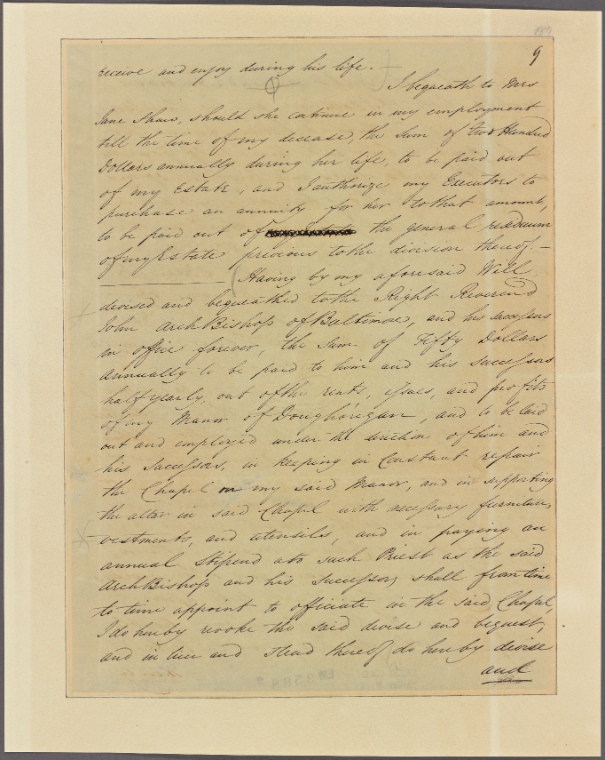 9
receive and enjoy during his life. —
I bequeath to Mrs
Jane Shaw, should she continue in my employment
till the time of my decease, the Sum of Two Hundred
Dollars annually during her life, to be paid out
of my Estate, and I authorize my Executors to
purchase an annuity for her to that amount,
to be paid out of the general residuum
of my Estate previous to the division thereof. —
Having by my aforesaid Will
devised and bequeathed to the Right Reverend
John ArchBishop of Baltimore, and his successors
in office forever, the Sum of Fifty Dollars
annually to be paid to him and his successors
half yearly, out of the rents, issues, and profits
of my Manor of Doughoregan, and to be laid
out and employed under the direction of him and
his Successors, in keeping in Constant repair
the Chapel on my said Manor, and in supporting
the altar in said Chapel with necessary furniture,
vestments, and utensils, and in paying an
annual stipend to such Priest as the said
ArchBishop and his successors shall from time
to time appoint to officiate in the said Chapel,
I do hereby revoke the said devise and bequest,
and in lieu and stead thereof do hereby devise
and